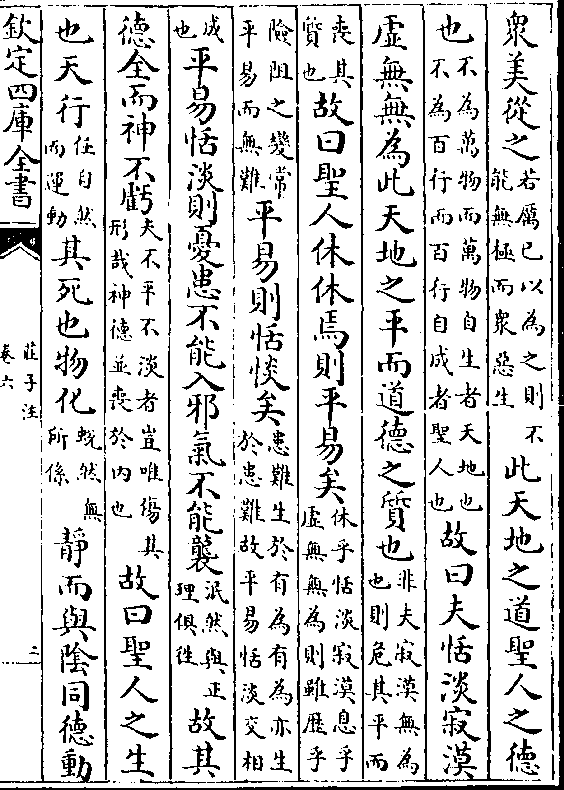 衆美從之若厲己以為之則不能無極而衆惡生此天地之道聖人之德
也不為萬物而萬物自生者天地也不為百行而百行自成者聖人也故曰夫恬淡寂漠
虛無無為此天地之平而道德之質也非夫寂漠無為也則危其平而
喪其質也故曰聖人休休焉則平易矣休乎恬淡寂漠息乎虛無無為則雖歷乎
險阻之變常平易而無難平易則恬惔矣患難生於有為有為亦生於患難故平易恬淡交相
成也平易恬淡則憂患不能入邪氣不能襲泯然與正理俱往故其
德全而神不虧夫不平不淡者豈唯傷其形哉神德並喪於内也故曰聖人之生
也天行任自然而運動其死也物化蛻然無所係靜而與陰同德動
欽定四庫全書
莊子注
卷六
二